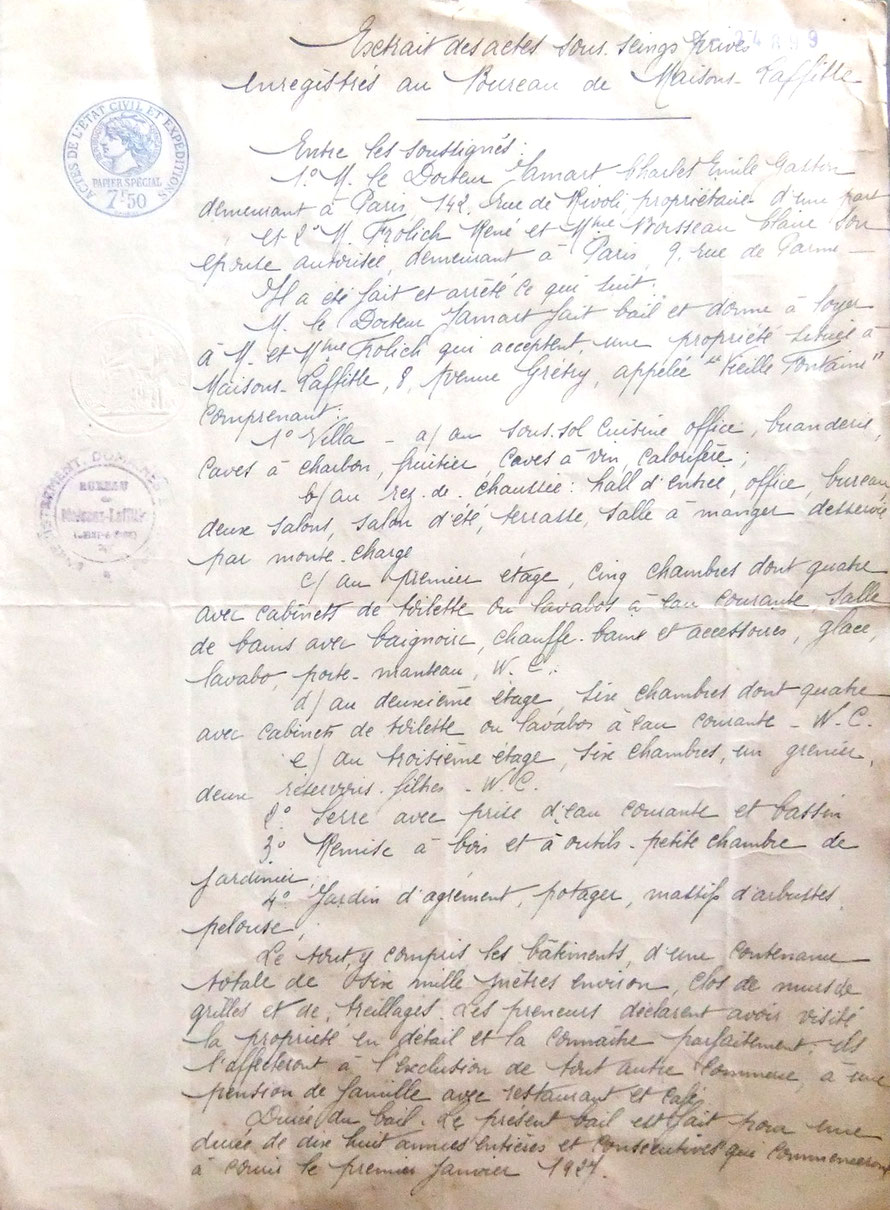 Extrait des actes sous-seings privés
enregistrés au Bureau de Maisons-Laffitte
ACTES DE L'ÉTAT CIVIL ET EXPÉDITIONS
PAPIER SPÉCIAL
7F50
Entre les soussignés :
1° M. le Docteur Jamart Charles Emile Gaston
demeurant à Paris, 142, rue de Rivoli, propriétaire d'une part
et 2° M. Frölich René et Mme Boisseau Claire son
épouse autorisée, demeurant à Paris, 9, rue de Parme —
Il a été fait et arrêté ce qui suit :
M. le Docteur Jamart fait bail et donne à loyer
à M. et Mme Frölich qui acceptent, une propriété située à
Maisons-Laffitte, 8, Avenue Grétry, appelée "Vieille Fontaine"
comprenant :
1° Villa — a/ au sous-sol cuisine office, buanderie,
caves à charbon, fruitier, caves à vin, calorifère ;
BUREAU
Maisons-Laffitte
b/ au rez-de-chaussée : hall d'entrée, office, bureau,
deux salons, salon d'été, terrasse, salle à manger desservie
par monte-charge
c/ au premier étage, cinq chambres dont quatre
avec cabinets de toilette ou lavabos à eau courante salle
de bains avec baignoire, chauffe-bains et accessoires, glace,
lavabo, porte-manteau, W.C. :
d/ au deuxième étage, six chambres dont quatre
avec cabinets de toilette ou lavabos à eau courante — W.C.
e/ au troisième étage, six chambres, un grenier,
deux réservoirs-filtres — W.C.
2° Serre avec prise d'eau courante et bassin
3° Remise à bois et à outils — petite chambre de
jardinier ;
4° Jardin d'agrément, potager, massifs d'arbustes,
pelouse ;
Le tout, y compris les bâtiments, d'une contenance
totale de six mille mètres environ, clos de murs de
grilles et de treillages. Les preneurs déclarent avoir visité
la propriété en détail et la connaître parfaitement ; ils
l'affecteront à l'exclusion de tout autre commerce, à une
pension de famille avec restaurant et café
Durée du bail. Le présent bail est fait pour une
durée de dix huit années entières et consécutives qui commenceront
à courir le premier Janvier 1927.